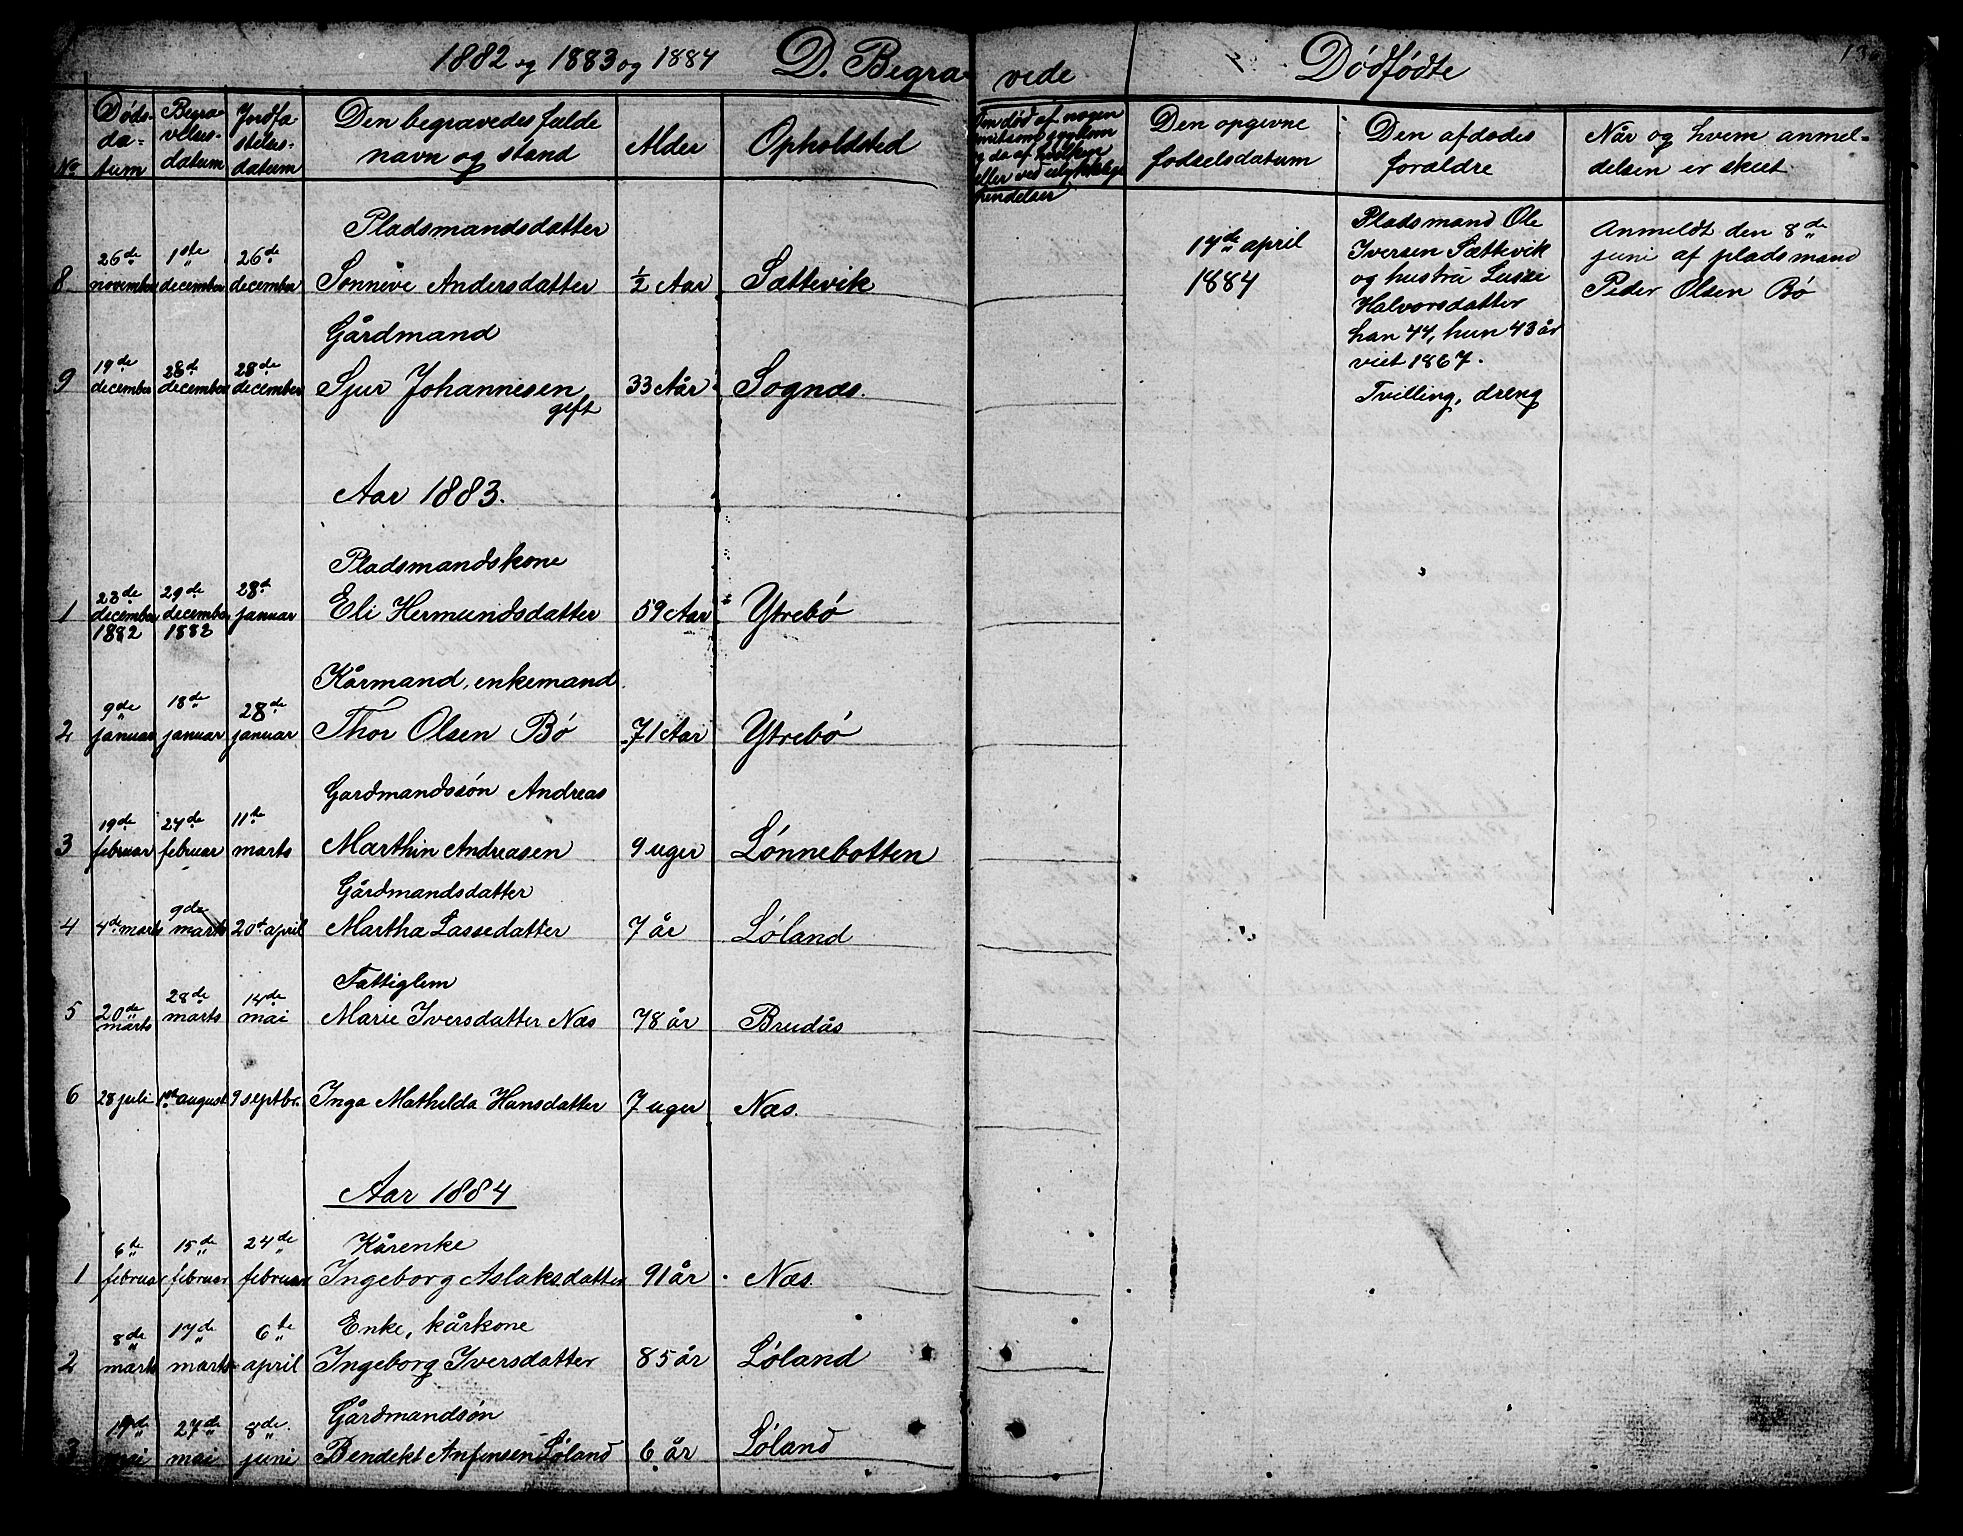 1882 og 1883 og 1884 D. Begravede Dødfødte
No Dødsdatum Begravelsesdatum Jordfæstelsesdatum Den begravedes fulde navn og stand Alder Opholdsted
Om død af nogen
eller ved ulykkelige
hendelser
Den opgivne
fødselsdatum
Den afdødes
foræeldre
Når og hvem anmel-
delsen er skeet
Pladsmandsdatter
8 26de november 1ste december 26de december Sønneve Andersdatter ½ Aar Sættevik
Gårdmand
9 19de december 28d december 28de december Sjur Johannesen 33 Aår Sognæs.
gift
Aar 1883.
Pladsmandskone
1 23de december 1882 29de december 1882 28d januar Eli Hermundsdatter 59 Aar Ytrebø
Kårmand, enkemand
2 9de januar 18de januar 28de januar Thor Olsen Bø 71 Aar Ytrebø
Gardmandssøn Andreas
3 19de februar 27de februar 11te marts Marthin Andreasen 9 uger Lønnebotten
Gårdmandsdatter
4 4de marts 9de marts 20d april Martha Lassedatter 7 år Løland
Fattiglem
5 20de marts 28de marts 14de mai Marie Iversdatter Næs 78 år Brudås
6 28 juli 1ste august 9 septbr. Inga Mathilda Hansdatter 7 uger Næs.
Aar 1884
Kårenke
1 6te februar 15de februar 24de februar Ingeborg Aslaksdatter 91 år Næs.
Enke, kårkone
2 8de marts 17de marts 6te april Ingeborg Iversdatter 85 år Løland
Gårdmandsøn
3 19de mai 27de mai 8de juni Bendekt Anfinsen Løland 6 år Løland
17de april
1884
Pladsmand Ole
Iversen Sættevik
og hustru
Halvorsdatter
han 44, hun 43 år
viet 1867.
Tvilling, dreng
Anmeldt den 8de
juni af pladsmand
Peder Olsen Bø